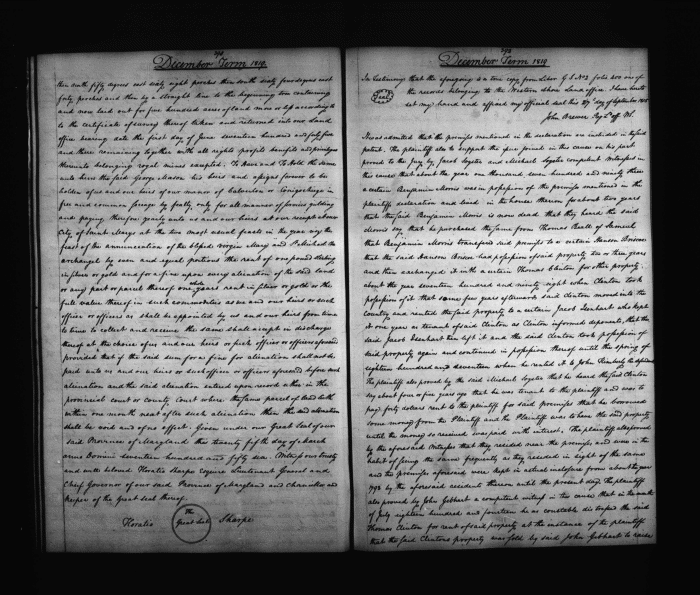 December Term 1819
then north fifty degrees east sixty eight perches then south sixty four degrees east
forty perches and then by a straight line to the beginning tree containing
and now laid out for five hundred acres of land more or less according to
the certificate of survey thereof taken and returned into our land
office bearing date the first day of June seventeen hundred and
and there remaining together with all rights profits benefits and privileges
thereunto belonging royal mines excepted. To have and To Hold the same
unto him the said George Mason his heirs and assigns forever to be
holden of us and our heirs of our manor of
free and common soccage by fealty only for all manner of services yielding
and paying therefor yearly unto us and our heirs at our receipt at our
City of Saint Marys at the two most usual feasts in the year viz the
feast of the annunciation of the blessed virgin Mary and St Michael the
archangel by even and equal portions the rent of one pound sterling
in silver or gold and for a fine upon every alienation of the said land
or any part or parcel thereof one whole years rent in silver or gold or the
full value thereof in such commodities as we and our heirs or such
officer or officers as shall be appointed by us and our heirs from time
to time to collect and receive the same shall accept in discharge
thereof at the choice of us and our heirs or such officer or officers aforesaid
provided that if the said sum for a fine for alienation shall not be
paid unto us and our heirs or such officer or officers aforesaid before such
alienation and the said alienation entered upon record either in the
provincial court or county court where the same parcel of land lieth
within one month next after such alienation then the said alienation
shall be void and of no effect. Given under our Great Seal of our
said Province of Maryland this twenty fifth day of March
anno Domini seventeen hundred and fifty six. Witness our trusty
and well beloved Horatio Sharpe esquire Lieutenant General and
Chief Governor of our said Province of Maryland and Chancellor and
keeper of the Great Seal thereof.
Horatio The Great Seal Sharpe
December Term 1819
In testimony that the aforegoing is a true copy from Liber folio 200 one of
the records belonging to the Western Shore Land office I have hereto
Seal set my hand and affixed my official seal this 27th day of September
John Brewer Reg
It was admitted that the premises mentioned in the declaration are included in the said
patent. The plaintiff also to support the issue joined in this cause on his part
proved to the Jury by Jacob and Michael competent witnesses in
this cause that about the year one thousand seven hundred and ninety three
a certain Benjamin Morris was in possession of the premises mentioned in the
plaintiffs declaration and lived in the house thereon for about two years
that the said Benjamin Morris is now dead that they heard the said
Morris say that he purchased the same from Thomas Beall of Samuel
that Benjamin Morris transferred said premises to a certain
that the said had possession of said property two or three years
and then exchanged it with a certain Thomas Clinton for other property.
about the year seventeen hundred and ninety eight when Clinton took
possession of it that some few years afterwards said Clinton moved into the
country and rented the said property to a certain Jacob who kept
it one year as tenant of said Clinton as Clinton informed deponents, that the
said Jacob then left it and the said Clinton took possession of
said property again and continued in possession thereof until the spring of
eighteen hundred and seventeen when he rented it to John
The plaintiff also proved by the said Michael that he heard the said Clinton
say about four or five years ago that he was tenant to the plaintiff and was to
pay forty dollars rent to the plaintiff for said premises that he borrowed
some money from the Plaintiff and the Plaintiff was to have the said property
until the money so received was paid with interest. The plaintiff also proved
by the aforesaid witnesses that they resided near the premises and were in the
habit of seeing the same frequently as they resided in sight of the same
and the premises aforesaid were kept in actual inclosure from about the year
1793 by the aforesaid residents thereon until the present day. The plaintiff
also proved by John Gebhart a competent witness in this cause that in the month
of July eighteen hundred and fourteen he as constable distrained the said
Thomas Clinton for rent of said property at the instance of the plaintiff
that the said Clintons property was sold by said John Gebhart to raise